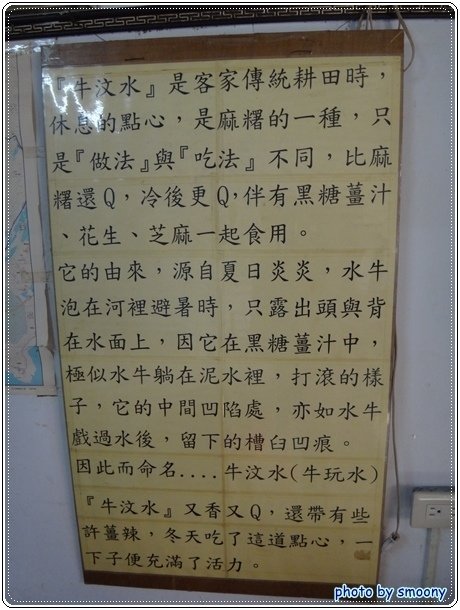 『牛汶水』是客家傳統耕田時，
休息的點心，是麻糬的一種，只
是『做法』與『吃法』不同，比麻
糬還Q，冷後更Q，伴有黑糖薑汁
、花生、芝麻一起食用。
它的由來，源自夏日炎炎，水牛
泡在河裡避暑時，只露出頭與背
在水面上，因它在黑糖薑汁中，
極似水牛躺在泥水裡，打滾的樣
子，它的中間凹陷處，亦如水牛
戲過水後，留下的槽臼凹痕。
因此而命名....牛汶水(牛玩水)
『牛汶水』又香又Q，還帶有些
許薑辣，冬天吃了這道點心，一
下子便充滿了活力。
photo by smoony